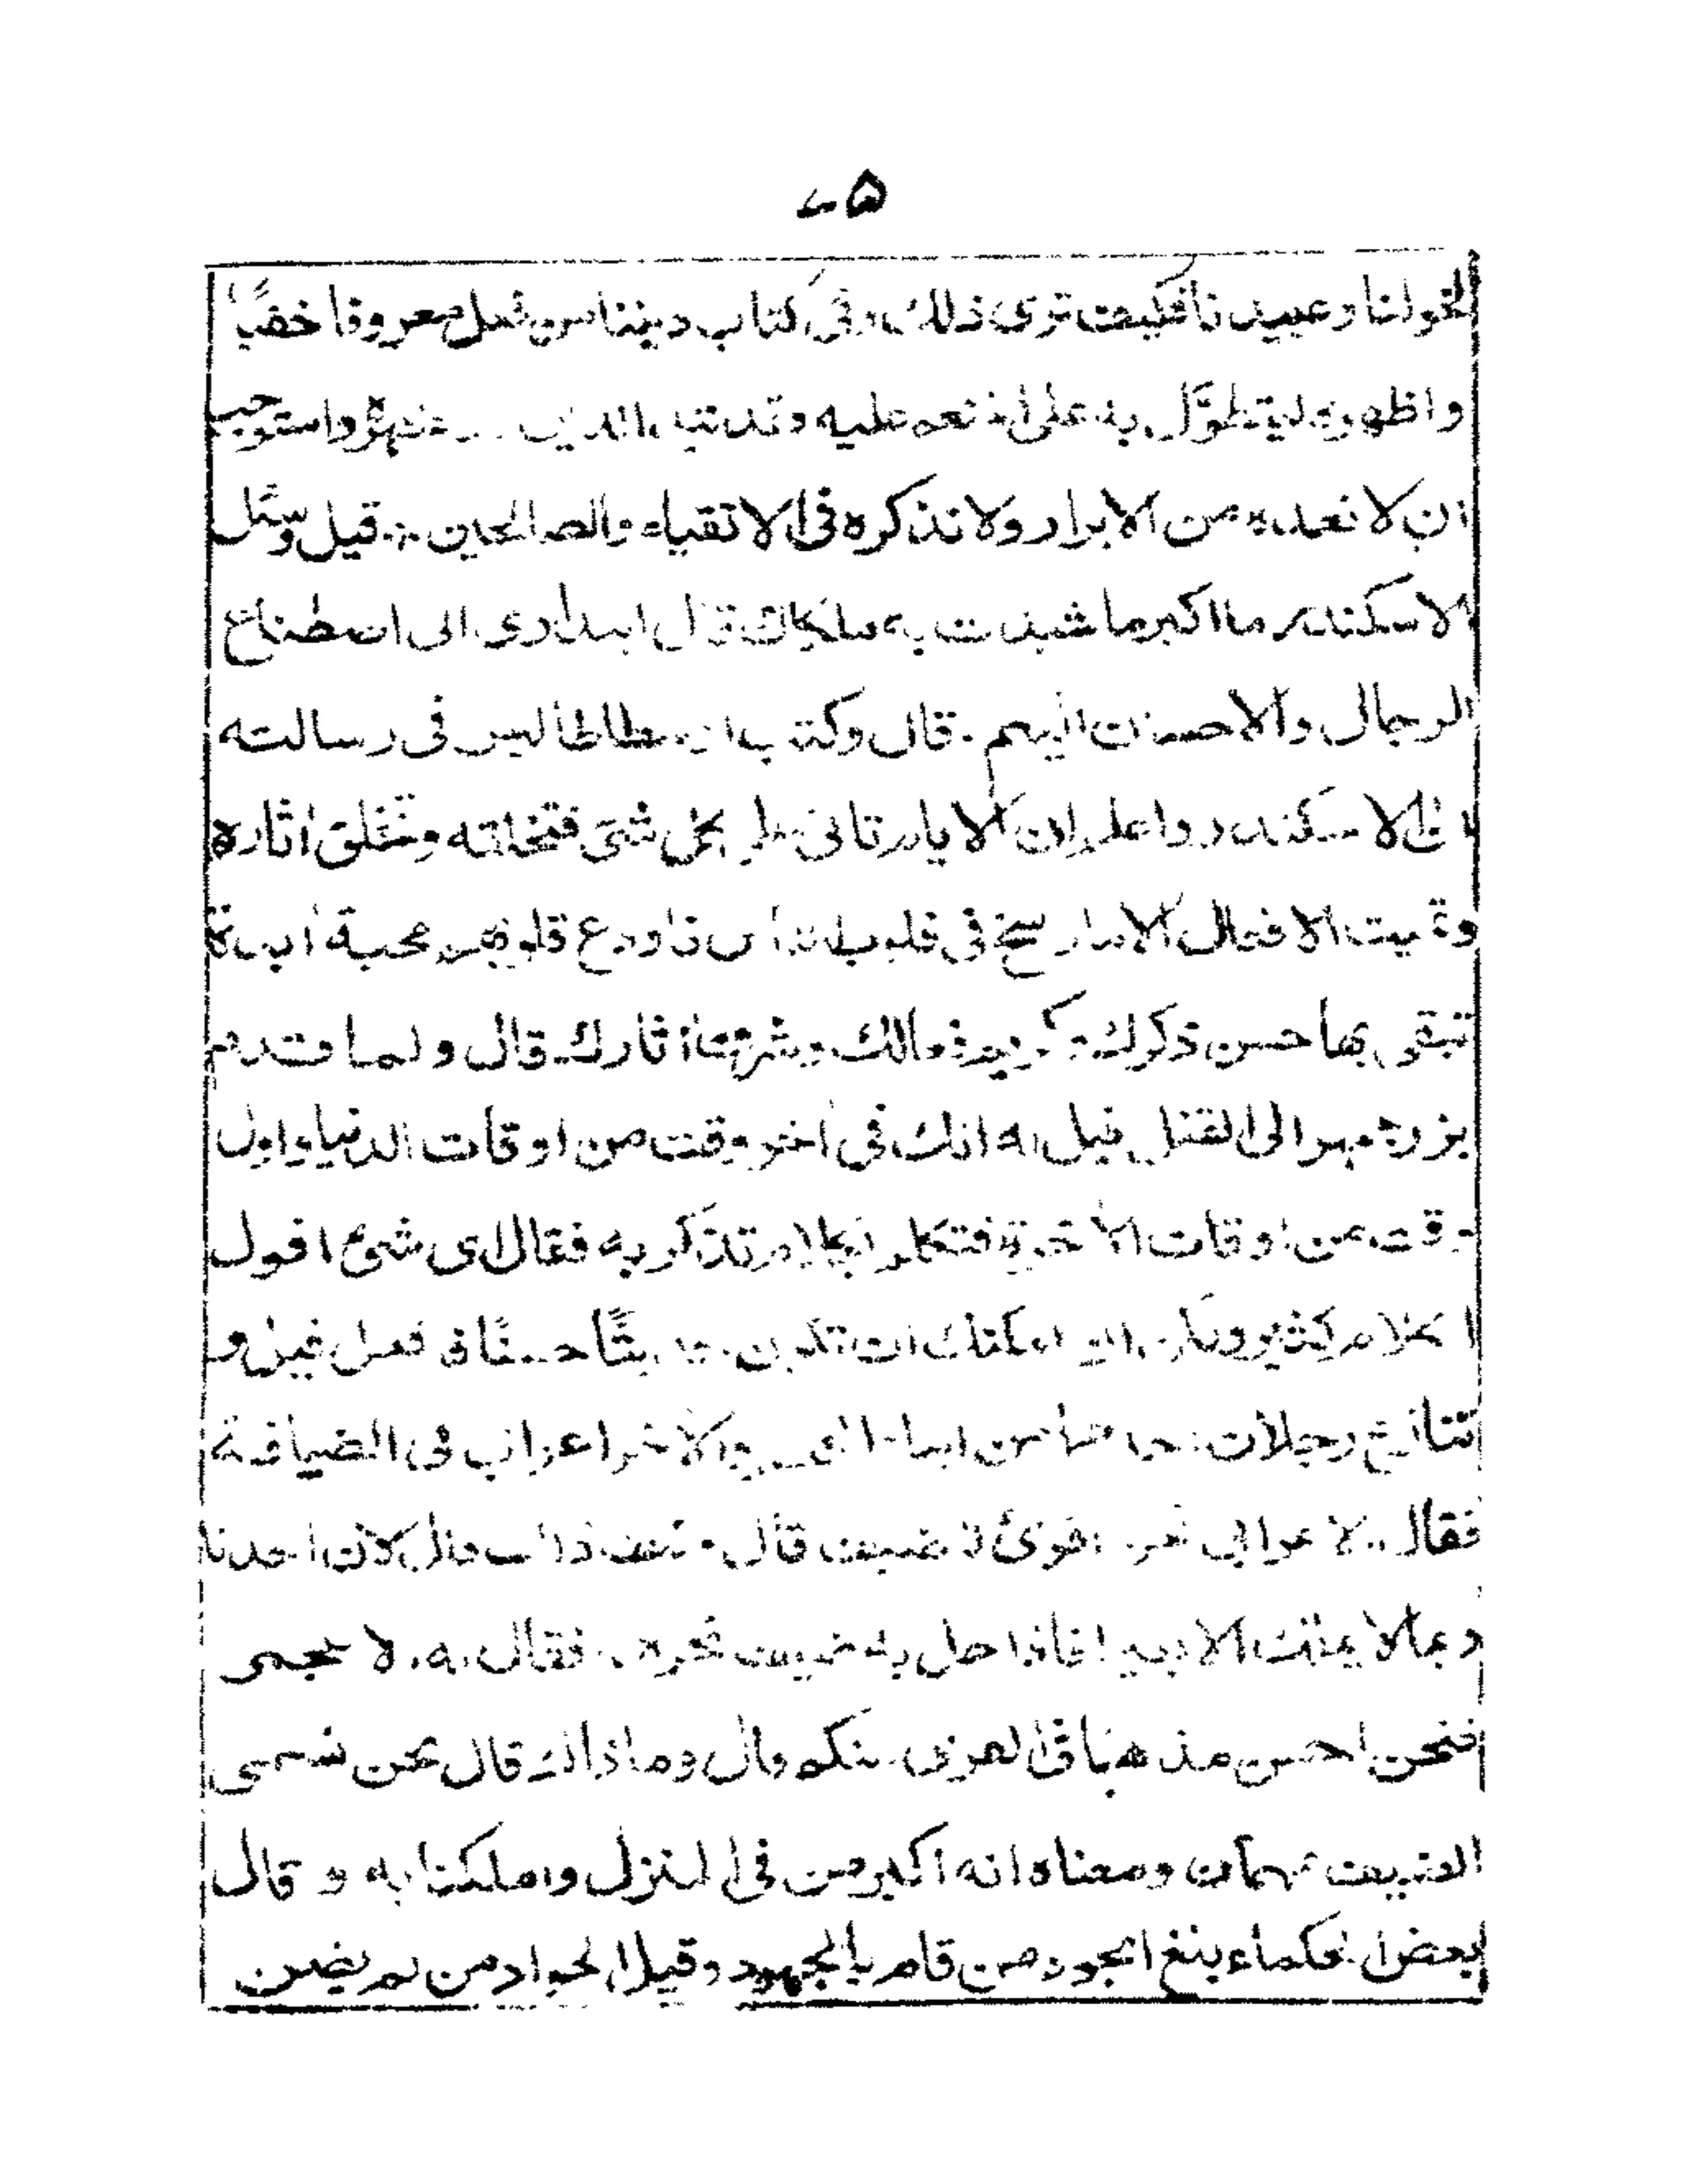 لخولنا وعبيدنا فكيف ترى ذلك وفى كتاب ديننا من فعل معروفا خفيًا
واظهره ليتطوّل به على المنعم عليه وقد نبذ الدين واستوجب
ان لا نعده من الابرار ولا نذكره فى الاتقياء والصالحين ؞ قيل وسئل
الاسكندر ما اكبر ما شيدت به ملكك قال ابتدارى الى اصطناع
الرجال والاحسان اليهم ۔ قال وكتب ارسطاطاليس فى رسالته
الى الاسكندر واعلم ان الايام تاتى على كل شئ فتخلقه وتخلق اثاره
وتميت الافعال الا ما رسخ فى قلوب الناس فاودع قلوبهم محبة ابدة
تبقى بها حسن ذكرك وكريم فعالك وشرف اثارك قال ولما قدم
بزرجمهر الى القتل قيل له انك فى اخر وقت من اوقات الدنيا واول
وقت من اوقات الاخرة فتكلم بكلام تذكر به فقال اى شئ اقول
الكلام كثير ولكن ان امكنك ان تكون حديثًا حسنًا فافعل قيل و
تنازع رجلان احدهما من ابناء العجم والاخر اعرابى فى الضيافة
فقال الاعرابى نحن اقرى للضيف قال وكيف ذلك قال لان احدنا
ربما لا يملك الا بعيرا فاذا حل به ضيف نحره له فقال له الاعجمى
فنحن احسن مذهبًا فى القرى منكم قال وما ذاك قال نحن نسمى
الضيف مهمان ومعناه انه اكبر من فى المنزل واملكنا به و قال
بعض الحكماء بلغ الجود من قام بالمجهود وقيل الجواد من لم يضن